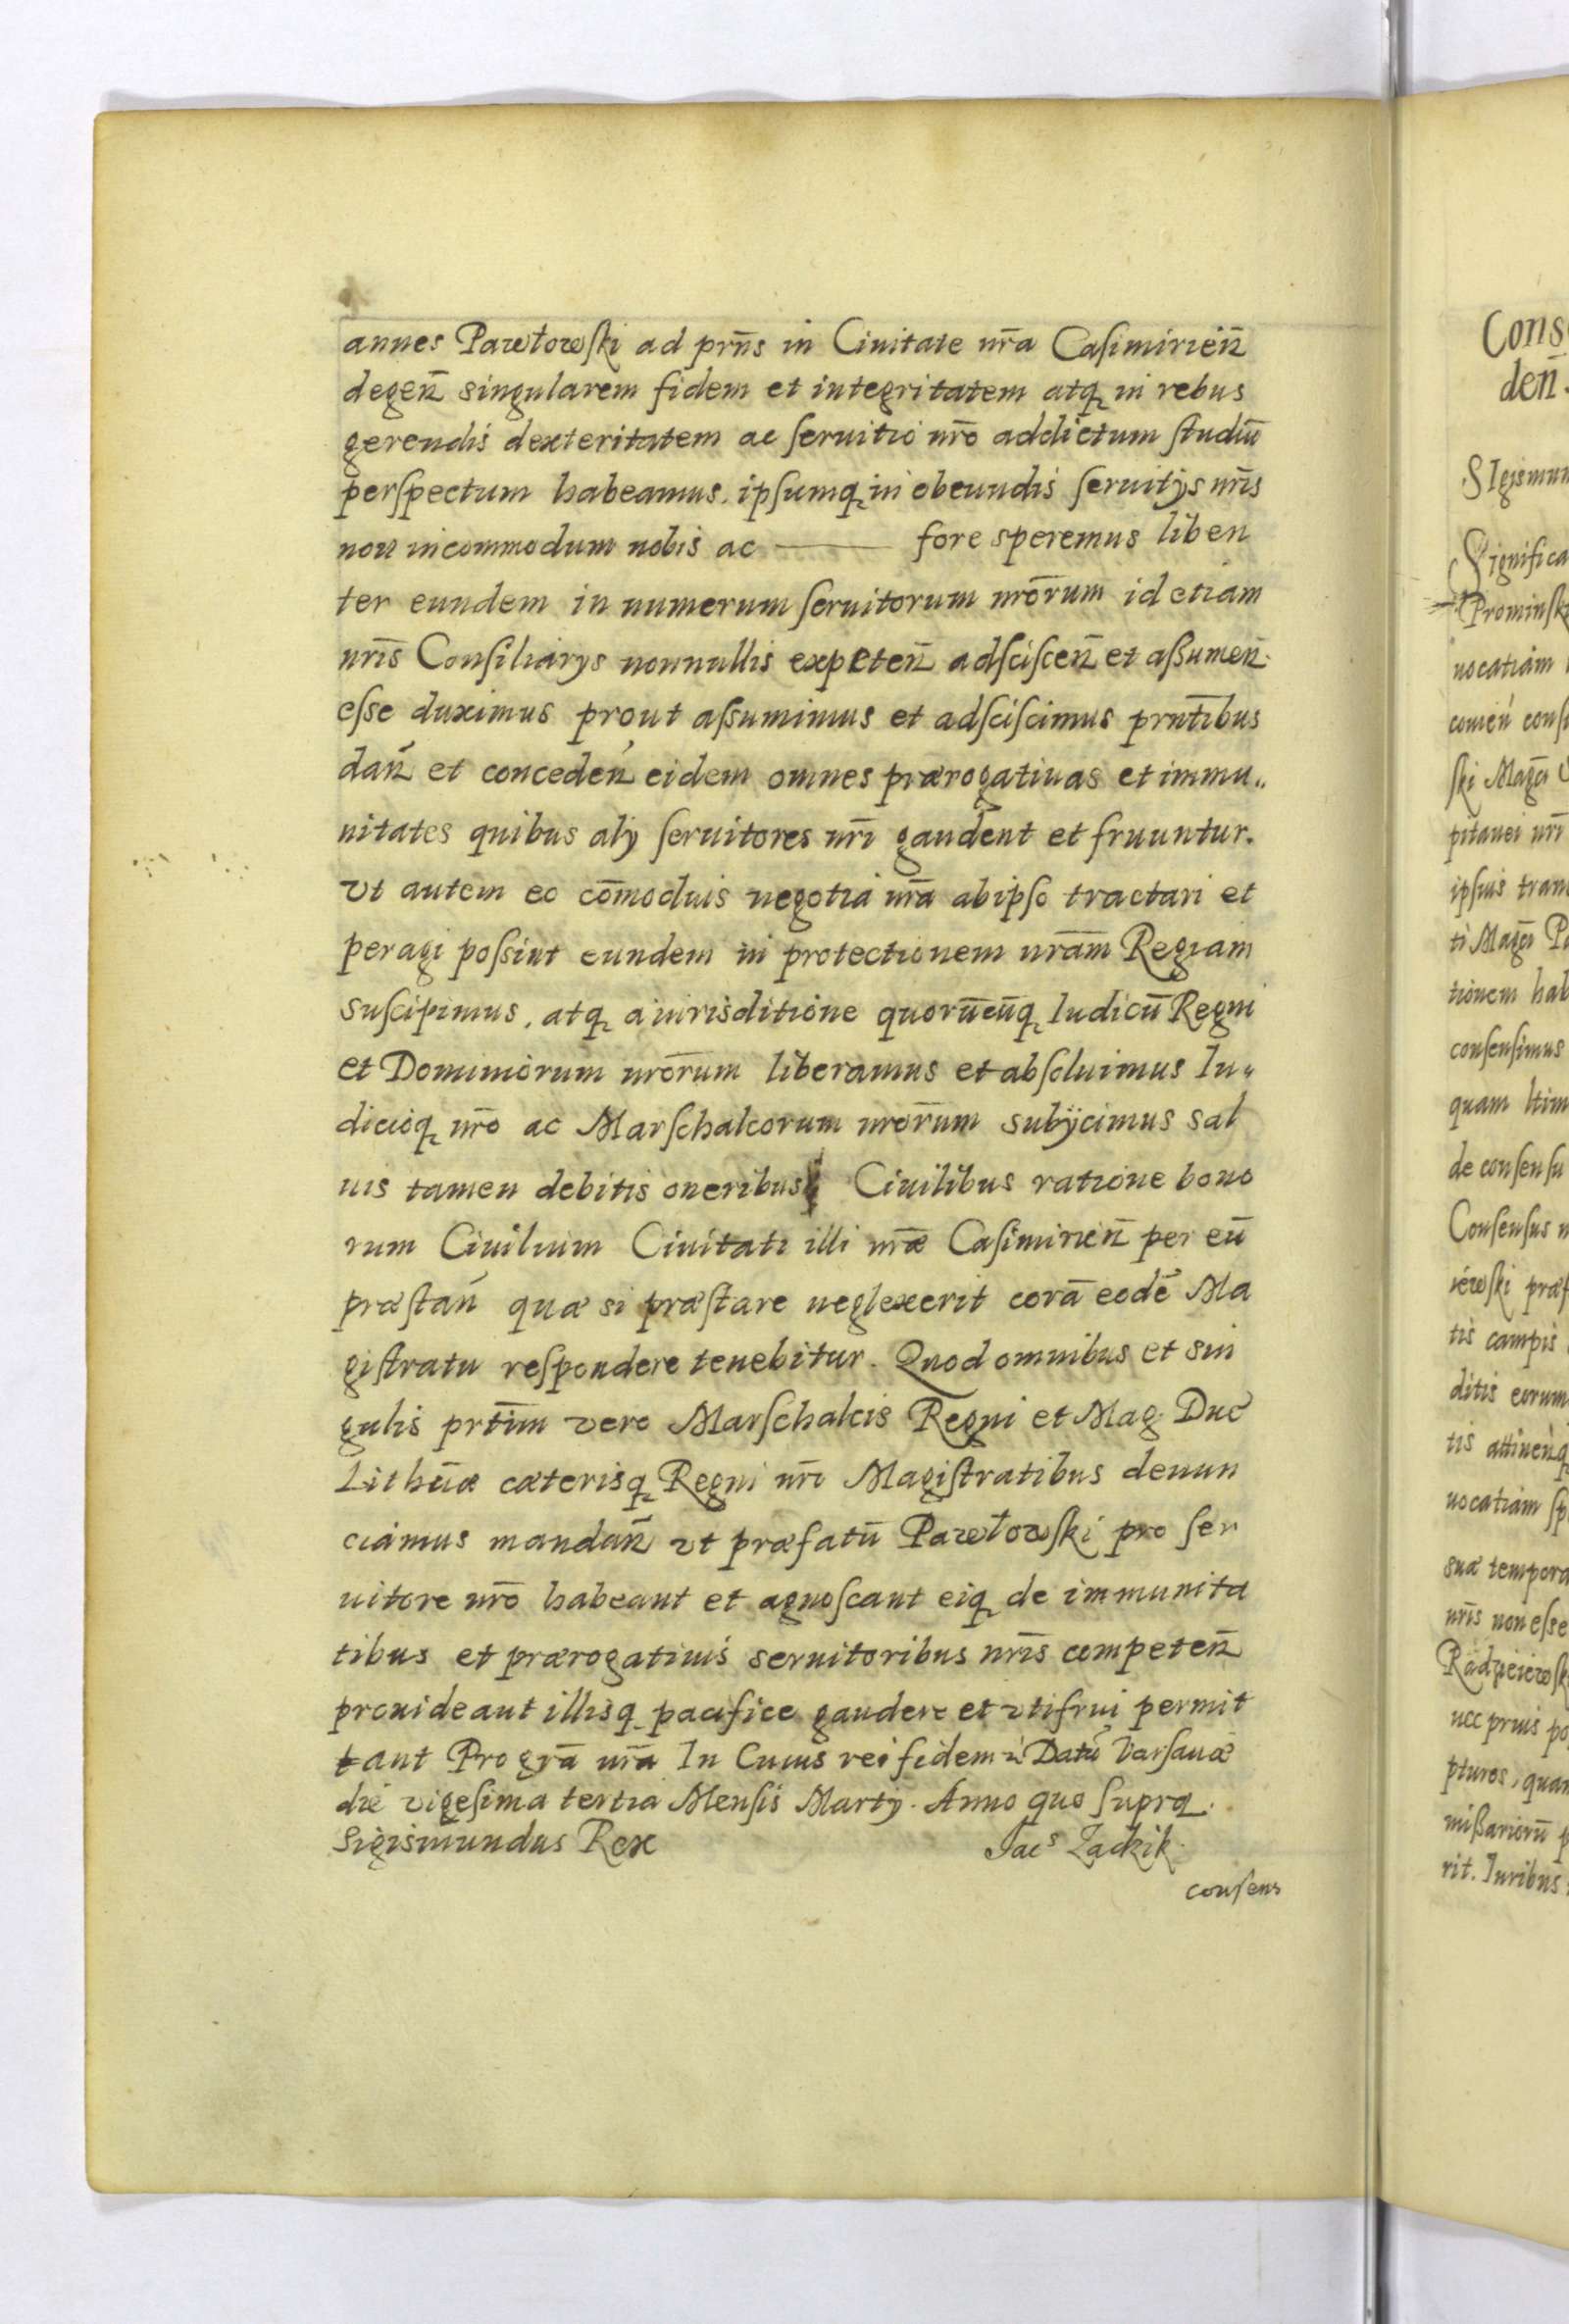 annes Pawłowski ad prñs in Ciuitate nr̃a Casimirień
degeñ singularem fidem et integritatem atq̨ in rebus
gerendis dexteritatem ac seruitio nr̃o addictum studiũ
perspectum habeamus. ipsumq̨ in obeundis seruitijs nr̃is
non incommodum nobis ac ——— fore speremus liben
ter eundem in numerum seruitorum nr̃orum id etiam
nr̃is Consiliarys nonnullis expeteñ adscisceñ et assumeñ.
esse duximus prout assumimus et adsciscimus prñtibus
dań et concedeń eidem omnes prærogatiuas et immu„
nitates quibus alÿ seruitores nr̃i gaudent et fruuntur.
vt autem eo cõmodius negotia nr̃a ab ipso tractari et
peragi possint eundem in protectionem nr̃am Regiam
suscipimus. atq̨ a iurisditione quorũcũq̨ Iudicũ Regni
et Dominiorum nr̃orum liberamus et absoluimus Iu„
dicioq̨ nr̃o ac Marschalcorum nr̃orum subÿcimus sal
uis tamen debitis oneribus Ciuilibus ratione bono
rum Ciuilium Ciuitati illi nr̃æ Casimirieñ per eũ
præstań quæ si præstare neglexerit corã eodẽ Ma
gistratu respondere tenebitur. Quod omnibus et sin
gulis prt̃im vero Marschalcis Regni et Mag. Duc̃
Lithũæ cæterisq̨ Regni nr̃i Magistratibus denun
ciamus mandań vt præfatũ Pawłowski pro ser
uitore nr̃o habeant et agnoscant eiq̨ de immunita
tibus et prærogatiuis seruitoribus nr̃is competeñ
prouideant illisq̨ pacifice gaudere et vtifrui permit
tant Pro gr̃a nr̃a In Cuius rei fidem Datũ Varsauæ
die vigesima tertia Mensis Martÿ. Anno quo supra.
Sigismundus Rex Jacs Zadzik.
consens
Cons
deñ
SIgismun
Significa
Prominsk
uocatiam
ski Magci
pitanei nr̃i
ipsius tran
ti Magci P
tionem hab
consensimus
quam ltim
de consensu
Consensus n
iewski præf
tis campis
ditis eorum
tis attineñq̨
uocatiam sp
suæ tempora
nr̃is non esse
Radzieiewsk
ucc prius po
ptures, quam
missariorũ p
rit. Iuribus